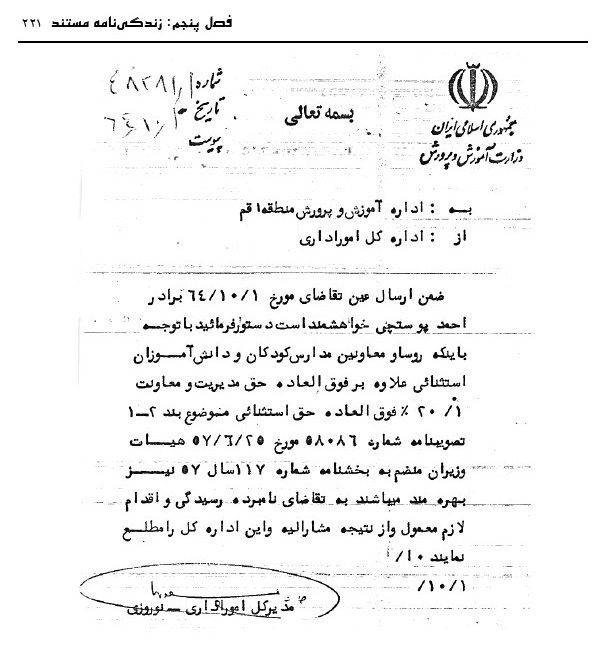 فصل پنجم: زندگی‌نامه مستند ۲۲۱
جمهوری اسلامی ایران
وزارت آموزش و پرورش
بسمه تعالی
شماره ۴۸۲۸۱/۱
تاریخ
پیوست
به : اداره آموزش و پرورش منطقه ۱ قم
از : اداره کل امور اداری
ضمن ارسال عین تقاضای مورخ ۶۴/۱۰/۱ برادر
احمد پوستچی خواهشمند است دستور فرمائید با توجه
باینکه روسا و معاونین مدارس کودکان و دانش‌آموزان
استثنائی علاوه بر فوق العاده حق مدیریت و معاونت
۲۰ ٪ فوق العاده حق استثنائی موضوع بند ۲-۱
تصویبنامه شماره ۵۸۰۸۶ مورخ ۵۷/۶/۲۵ هیات
وزیران منضم به بخشنامه شماره ۱۱۷ سال ۵۷ نیز
بهره مند میباشند به تقاضای نامبرده رسیدگی و اقدام
لازم معمول و از نتیجه مشارالیه و این اداره کل را مطلع
نمایند ۱۰/
۱۰/۱/
مدیرکل امور اداری - نوروزی